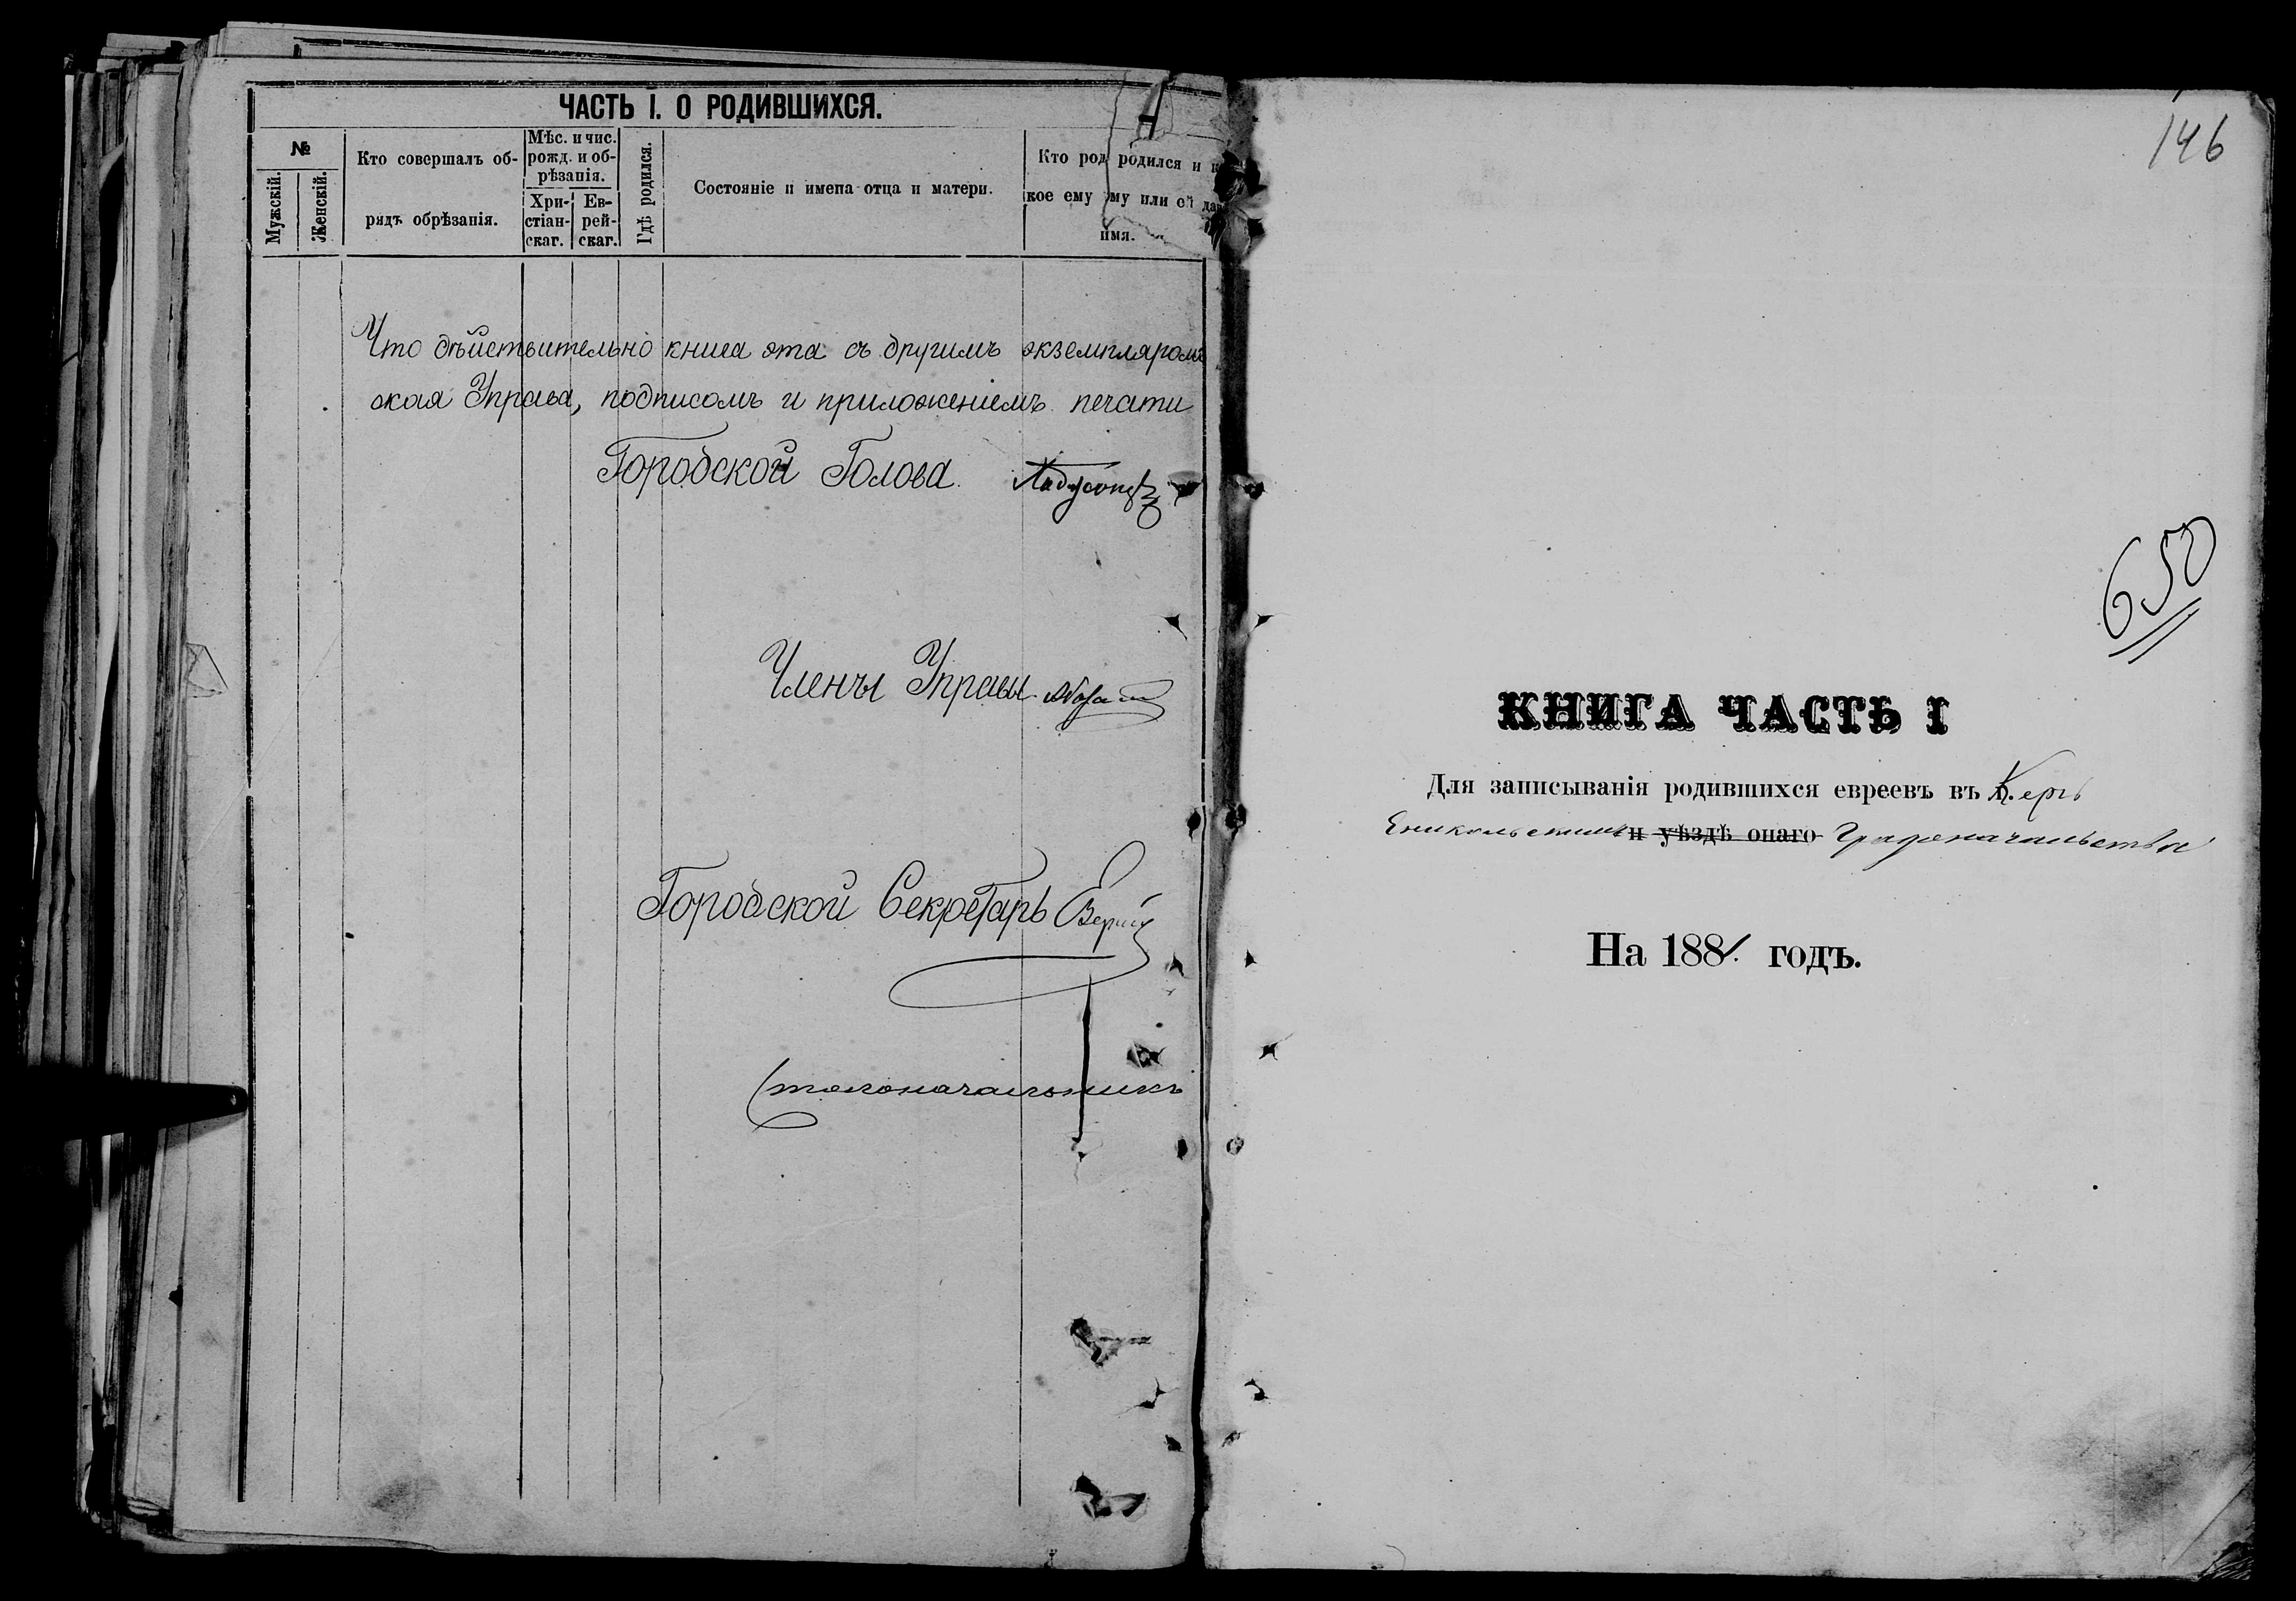 ЧАСТЬ I. О РОДИВШИХСЯ.
№
Мужскій.
Женскій.
Кто совершалъ об-
рядъ обрѣзанія.
Мѣс. и чис.
рожд. и об-
рѣзанія.
Хри-
стіан-
скаг.
Ев-
рей-
скаг.
Гдѣ родился.
Состояніе и имена отца и матери.
Кто род родился и
кое ему ему или ей
имя.
Что дѣйствительно книга эта съ другимъ экземпляромъ
ская Управа, подписомъ и приложеніемъ печати
Городской Голова
Члены Управы
Городской Секретарь
Столоначальникъ
146
650
КНИГА ЧАСТЬ I
Для записыванія родившихся евреевъ въ Керчь
Еникольскомъ и уѣздѣ онаго Градоначальствѣ
На 1881. годъ.